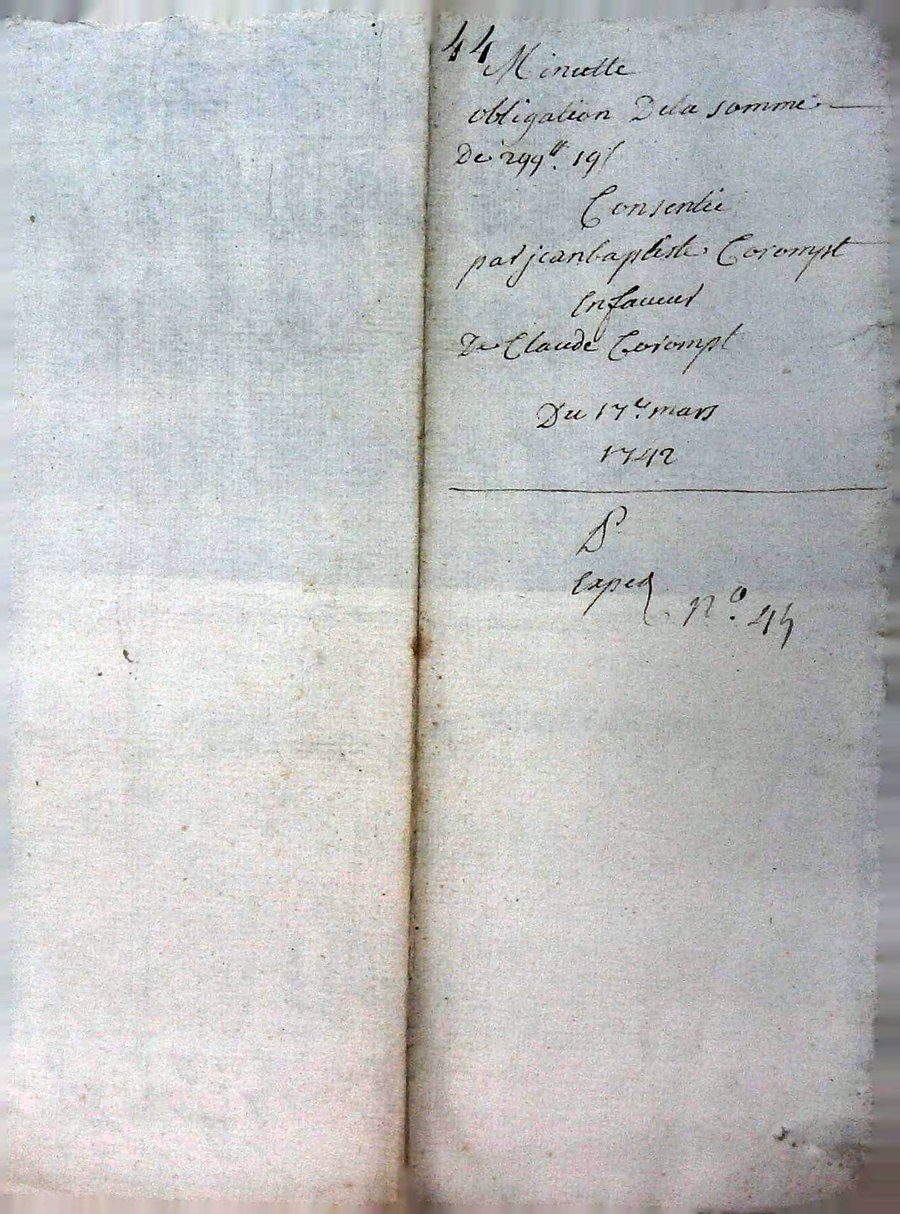 44
Minutte
obligation Dela somme
De 299ᵗᵗ. 19ˢ
Consentie
par jeanbaptiste Corompt
Enfaveur
De Claude Corompt
Du 17ᵉ. mars
1742
Exped
nº. 44